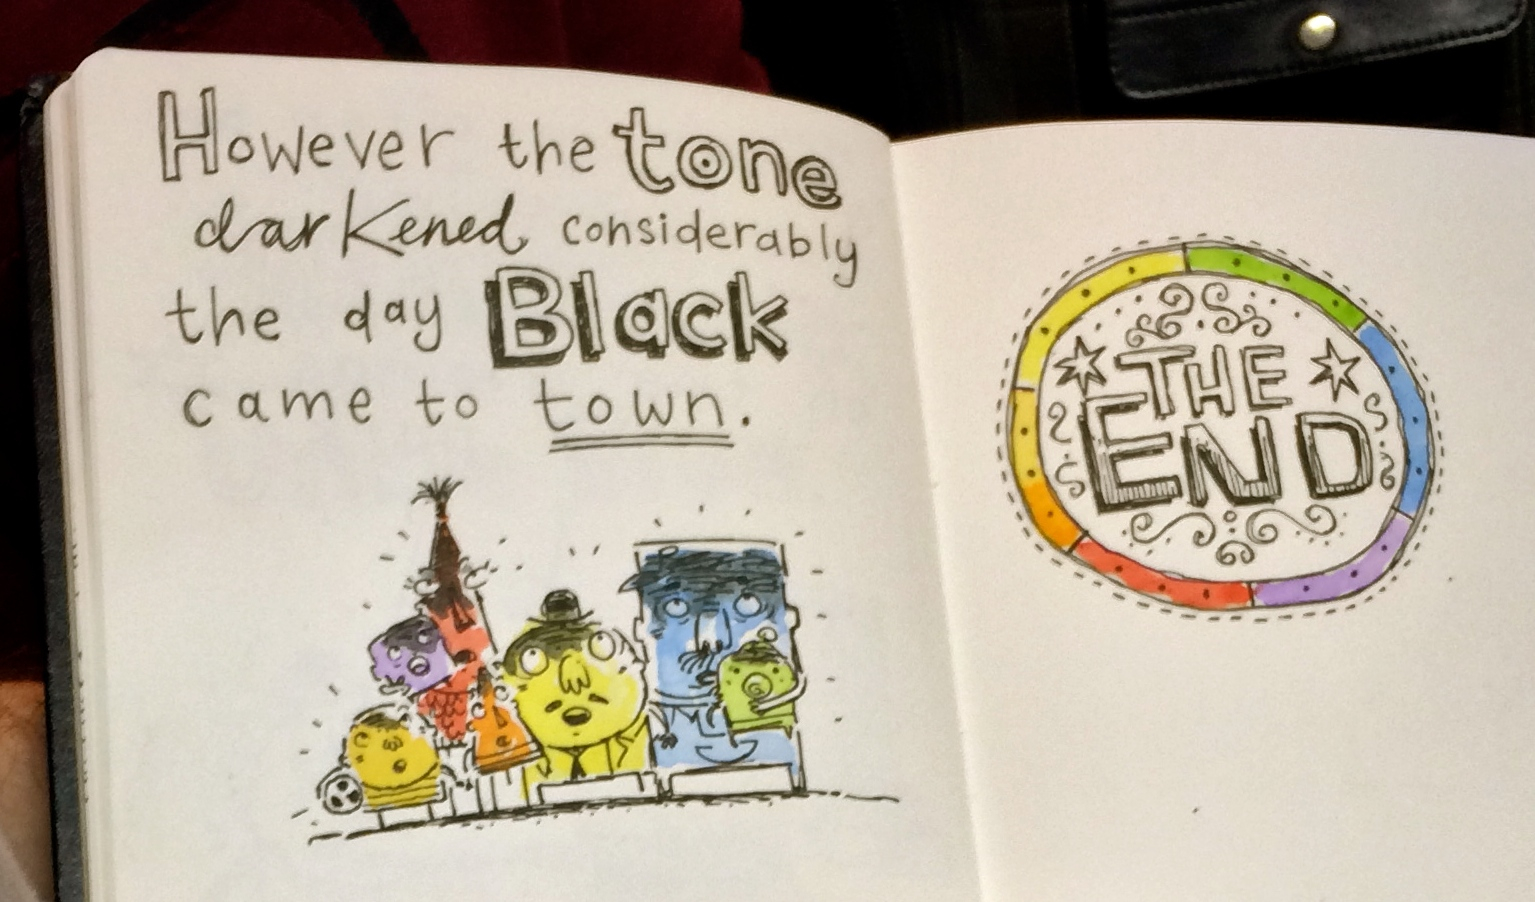 However the tone
darkened considerably
the day Black
came to town.
THE
END